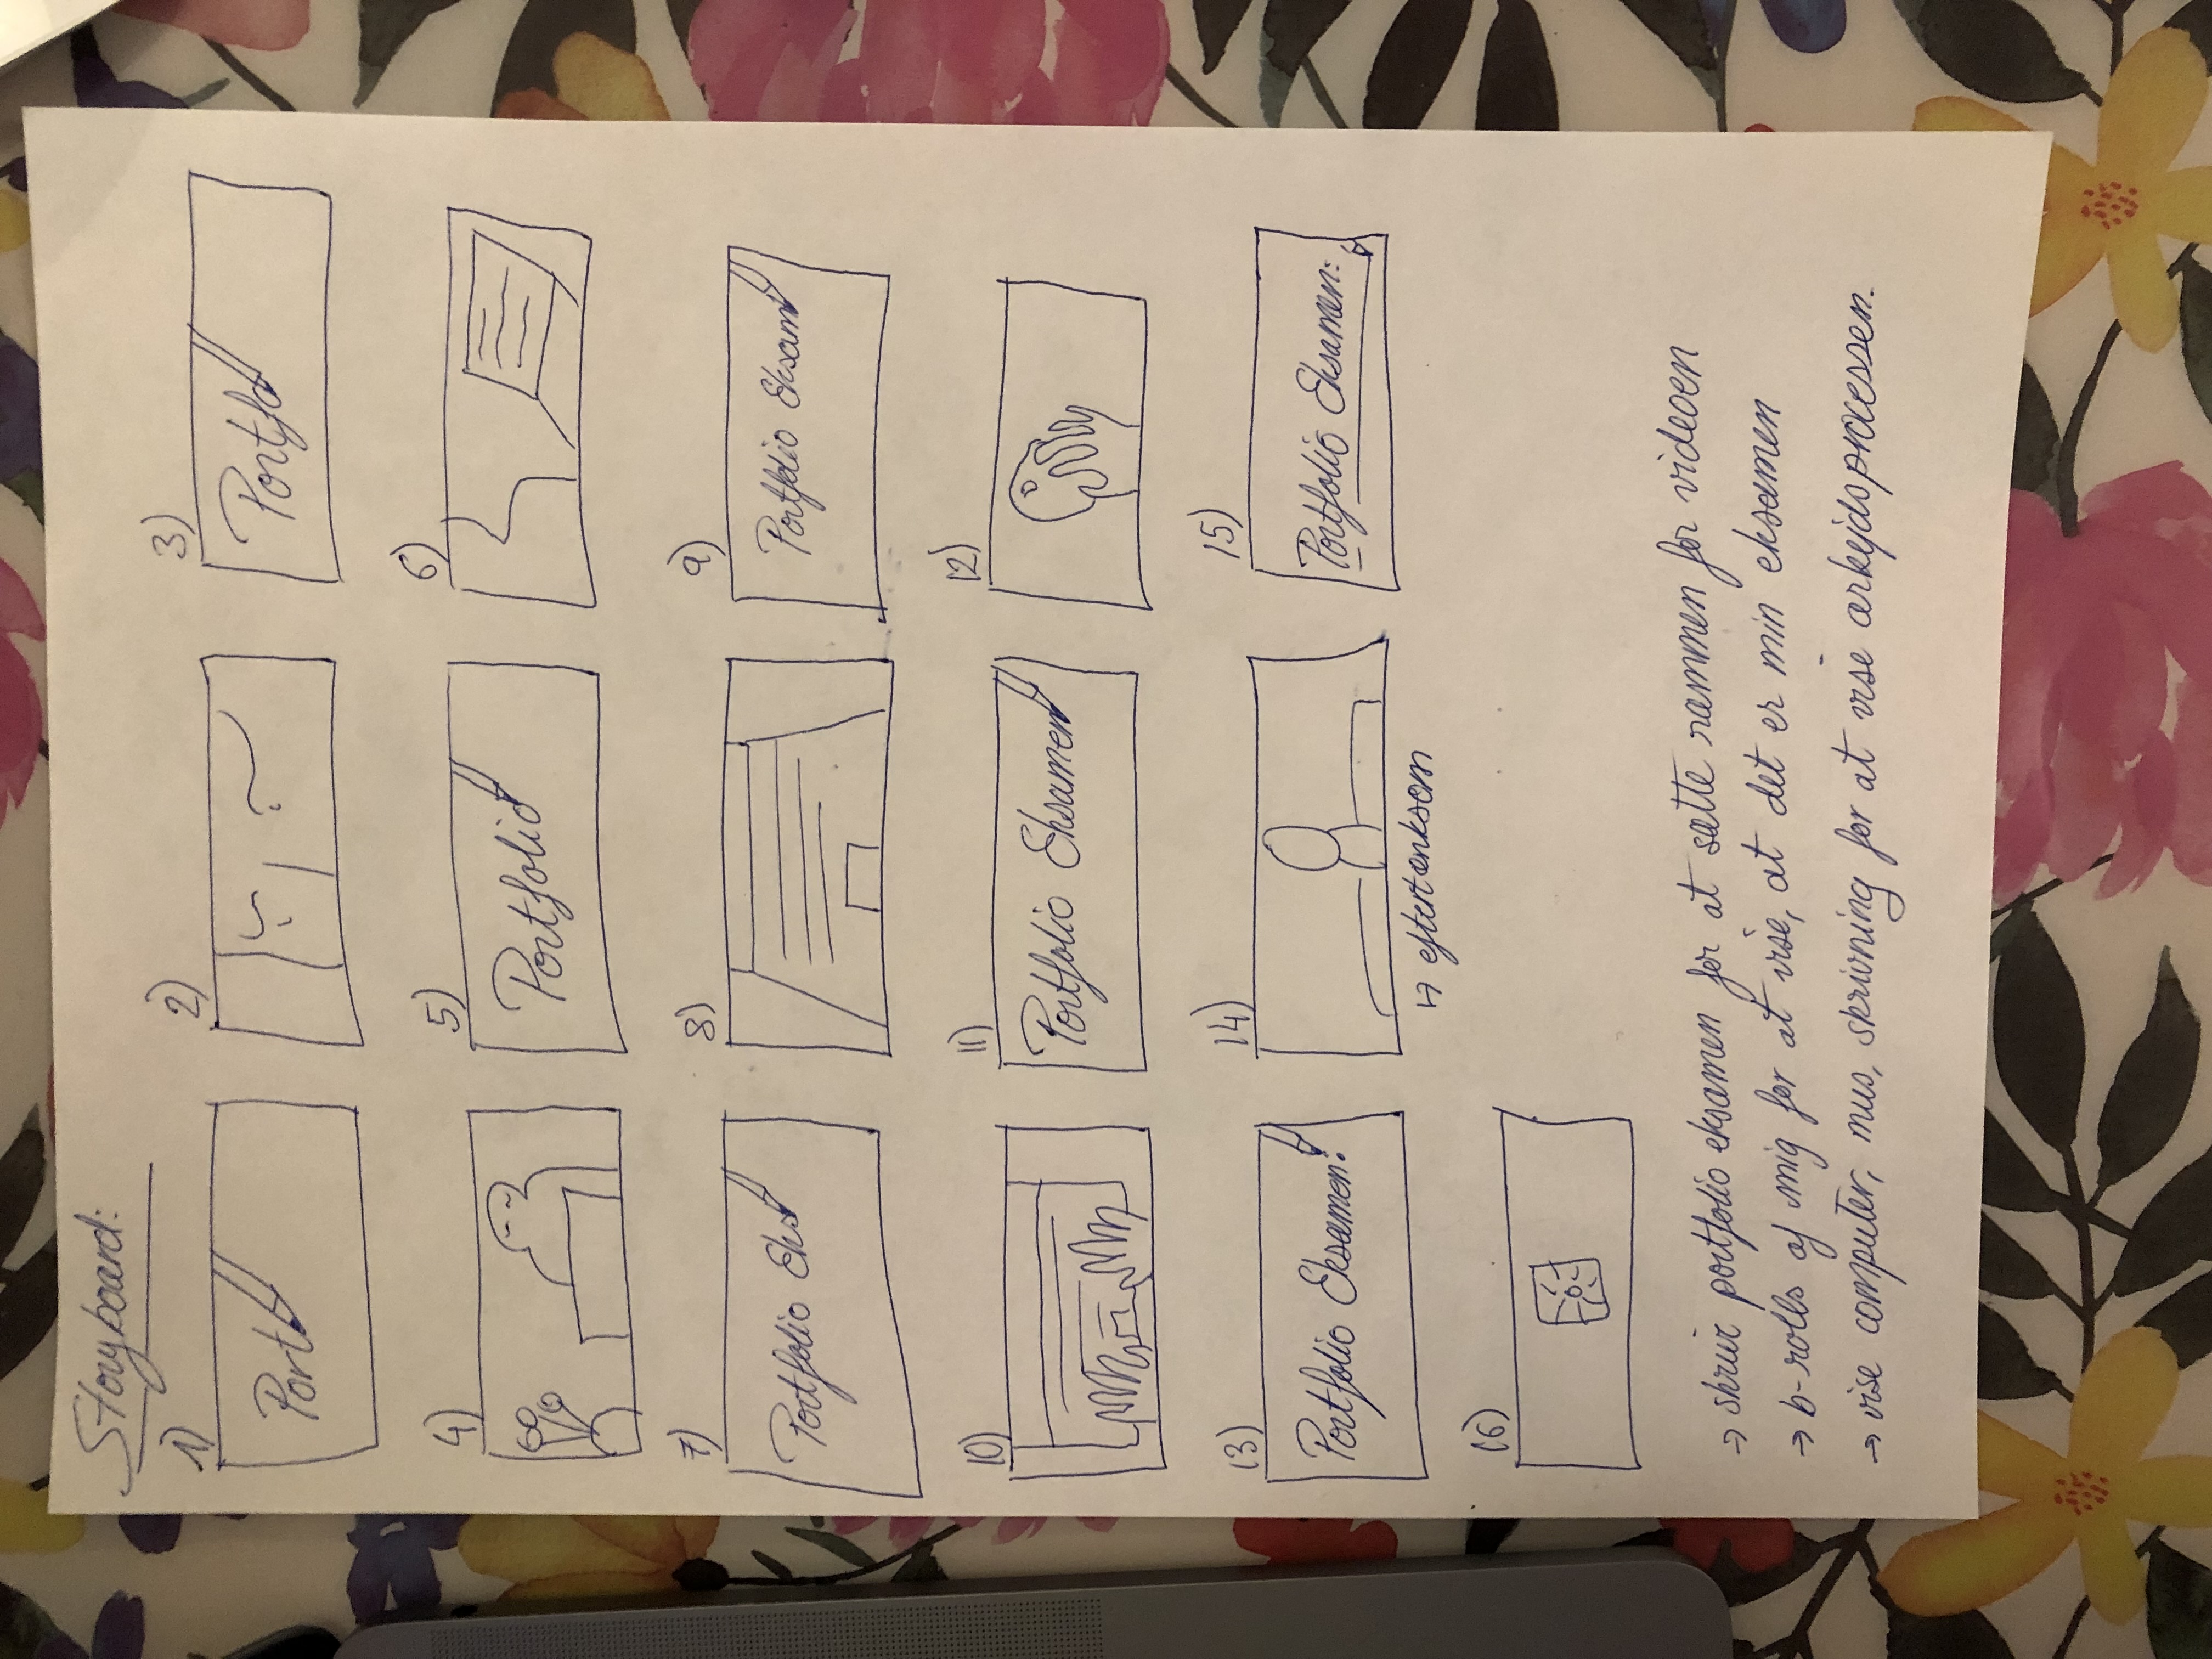 Storyboard:
1)
2)
3)
Port
Portfo
4)
5)
6)
Portfolio
7)
8)
9)
Portfolio Eks
Portfolio Eksam
10)
11)
12)
Portfolio Eksamen
13)
14)
15)
Portfolio Eksamen:
Portfolio Eksamen:
↦ eftertænksom
16)
→ skriv portfolio eksamen for at sætte rammen for videoen
→ b-rolls af mig for at vise, at det er min eksamen
→ vise computer, mus, skrivning for at vise arkejdsprocessen.